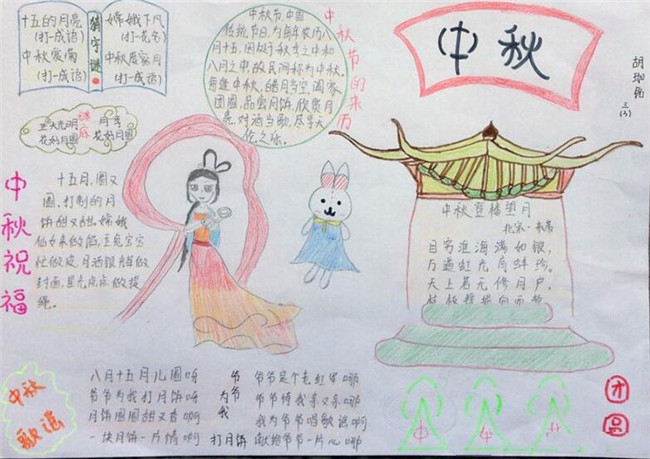 十五的月亮
(打一成语)
中秋赏菊
(打一成语)
猜字谜
嫦娥下凡
(打一花名)
中秋度蜜月
(打一成语)
正大光明
花好月圆
谜底
月季
花好月圆
中秋节的来历
中秋节,中国
传统节日,为每年农历八
月十五,因处于秋季之中和
八月之中,故民间称为中秋。
每逢中秋,皓月当空,阖家
团圆,品尝月饼,欣赏月
亮,对酒当歌,尽享天
伦之乐。
中秋
三(3)
中秋祝福
十五月,圆又
圆,打制的月
饼甜又甜,嫦娥
仙女来做馅,玉兔宝宝
忙做皮,月洒银辉做
封面,星光点点做提
绳。
中秋登楼望月
目穷淮海满如银,
万道虹光育蚌珍。
天上若无修月户,
中秋歌谣
八月十五月儿圆呀
爷爷为我打月饼呀
月饼圆圆甜又香啊
一块月饼一片情啊
爷爷为我打月饼
爷爷是个老红军哪
爷爷待我亲又亲哪
我为爷爷唱歌谣啊
献给爷爷一片心哪
中
中
中
团圆